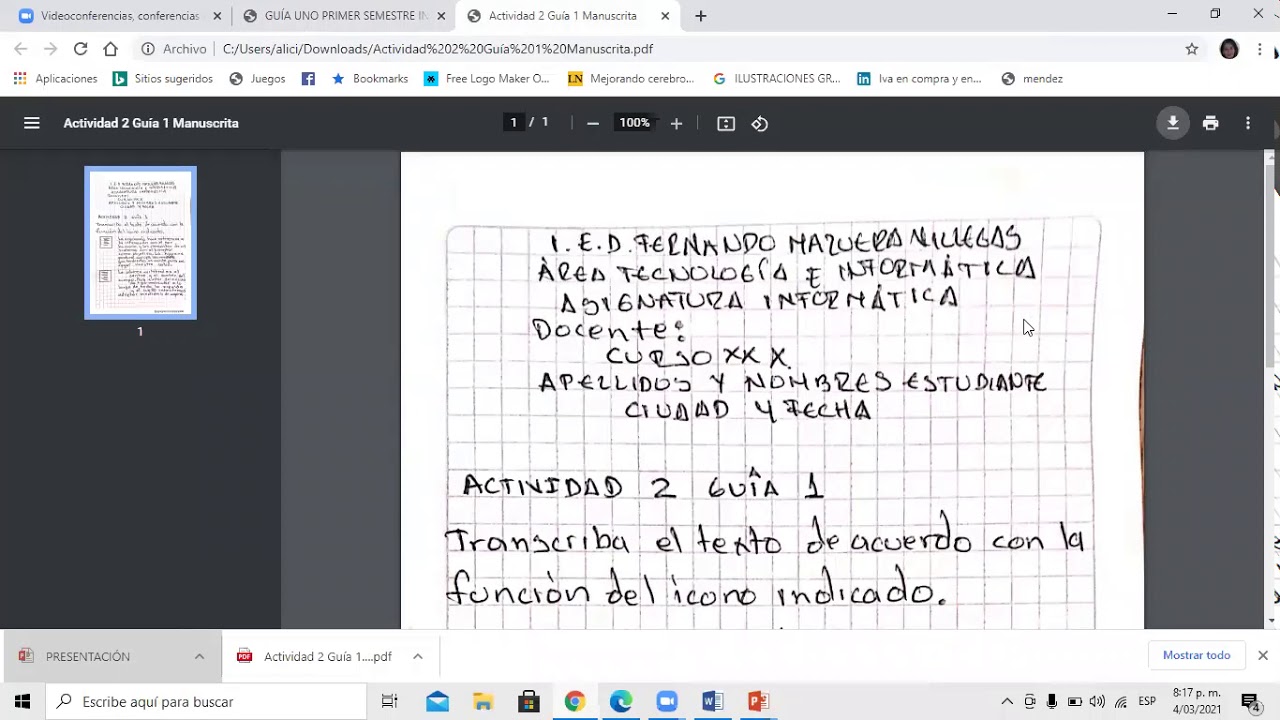 Videoconferencias, conferencias
GUÍA UNO PRIMER SEMESTRE IN
Actividad 2 Guía 1 Manuscrita
Archivo
C:/Users/alici/Downloads/Actividad%202%20Guía%201%20Manuscrita.pdf
Aplicaciones
Sitios sugeridos
Juegos
Bookmarks
Free Logo Maker O...
LN
Mejorando cerebro...
ILUSTRACIONES GR...
Iva en compra y en...
mendez
Actividad 2 Guía 1 Manuscrita
1 / 1
100%
I.E.D. FERNANDO MAZUERA VILLEGAS
ÁREA TECNOLOGÍA E INFORMÁTICA
ASIGNATURA INFORMÁTICA
Docente:
CURSO XX X.
APELLIDOS Y NOMBRES ESTUDIANTE
CIUDAD Y FECHA
ACTIVIDAD 2 GUÍA 1
Transcriba el texto de acuerdo con la
función del ícono indicado.
1
PRESENTACIÓN
Actividad 2 Guía 1....pdf
Mostrar todo
Escribe aquí para buscar
ESP
8:17 p. m.
4/03/2021
4